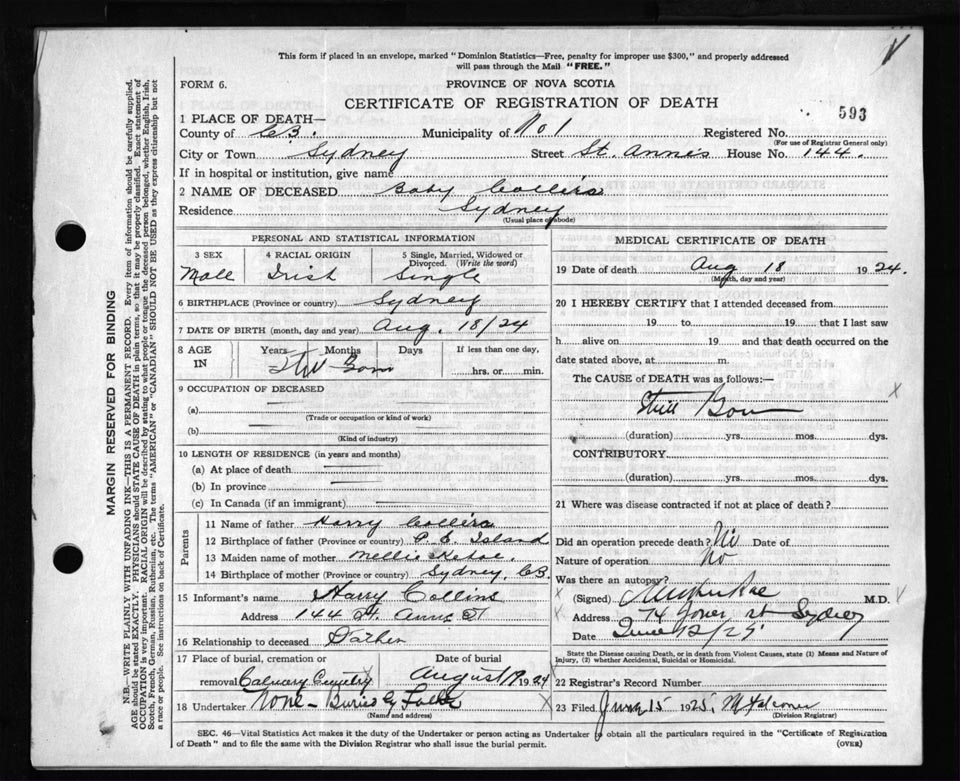 This form if placed in an envelope, marked "Dominion Statistics—Free, penalty for improper use $300," and properly addressed
will pass through the Mail "FREE."
FORM 6.
PROVINCE OF NOVA SCOTIA
CERTIFICATE OF REGISTRATION OF DEATH
593
1 PLACE OF DEATH—
County of C.B. Municipality of No 1 Registered No.
(For use of Registrar General only)
City or Town Sydney Street St. Anne's House No. 144.
If in hospital or institution, give name
2 NAME OF DECEASED Baby Collins
Residence Sydney
(Usual place of abode)
PERSONAL AND STATISTICAL INFORMATION
3 SEX 4 RACIAL ORIGIN 5 Single, Married, Widowed or
Divorced. (Write the word)
Male Irish Single
6 BIRTHPLACE (Province or country) Sydney
7 DATE OF BIRTH (month, day and year) Aug. 18/24
8 AGE IN Years Months Days If less than one day,
hrs. or min.
Still Born
9 OCCUPATION OF DECEASED
(a)
(Trade or occupation or kind of work)
(b)
(Kind of industry)
10 LENGTH OF RESIDENCE (in years and months)
(a) At place of death
(b) In province
(c) In Canada (if an immigrant)
Parents
11 Name of father Harry Collins
12 Birthplace of father (Province or country) P. E Island
13 Maiden name of mother Mellie Kehoe
14 Birthplace of mother (Province or country) Sydney, C.B.
15 Informant's name Harry Collins
Address 144 St. Anns St
16 Relationship to deceased Father
17 Place of burial, cremation or Date of burial
removal Calvary Cemetry August 19 1924
18 Undertaker None - Buried by Father
(Name and address)
MEDICAL CERTIFICATE OF DEATH
19 Date of death Aug 18 1924.
(Month, day and year)
20 I HEREBY CERTIFY that I attended deceased from
19 to 19 that I last saw
h alive on 19 and that death occurred on the
date stated above, at m.
The CAUSE of DEATH was as follows:—
Still Born
(duration) yrs. mos. dys.
CONTRIBUTORY
(duration) yrs. mos. dys.
21 Where was disease contracted if not at place of death?
Did an operation precede death? No Date of
Nature of operation No
Was there an autopsy?
(Signed) M.D.
Address 74 St Sydney
Date June 12/25
State the Disease causing Death, or in death from Violent Causes, state (1) Means and Nature of
Injury, (2) whether Accidental, Suicidal or Homicidal.
22 Registrar's Record Number
23 Filed June 15 1925, M Falconer
(Division Registrar)
SEC. 46—Vital Statistics Act makes it the duty of the Undertaker or person acting as Undertaker to obtain all the particulars required in the "Certificate of Registration
of Death" and to file the same with the Division Registrar who shall issue the burial permit.
(OVER)
MARGIN RESERVED FOR BINDING
N.B.—WRITE PLAINLY WITH UNFADING INK—THIS IS A PERMANENT RECORD. Every item of information should be carefully supplied.
AGE should be stated EXACTLY. PHYSICIANS should STATE CAUSE OF DEATH in plain terms, so that it may be properly classified. Exact statement of
OCCUPATION is very important. RACIAL ORIGIN will be described by stating to what people or tongue the deceased person belonged, whether English, Irish,
Scotch, French, German, Russian, Ruthenian, etc. The terms "AMERICAN" or "CANADIAN" SHOULD NOT BE USED as they express citizenship but not
a race or people. See instructions on back of Certificate.